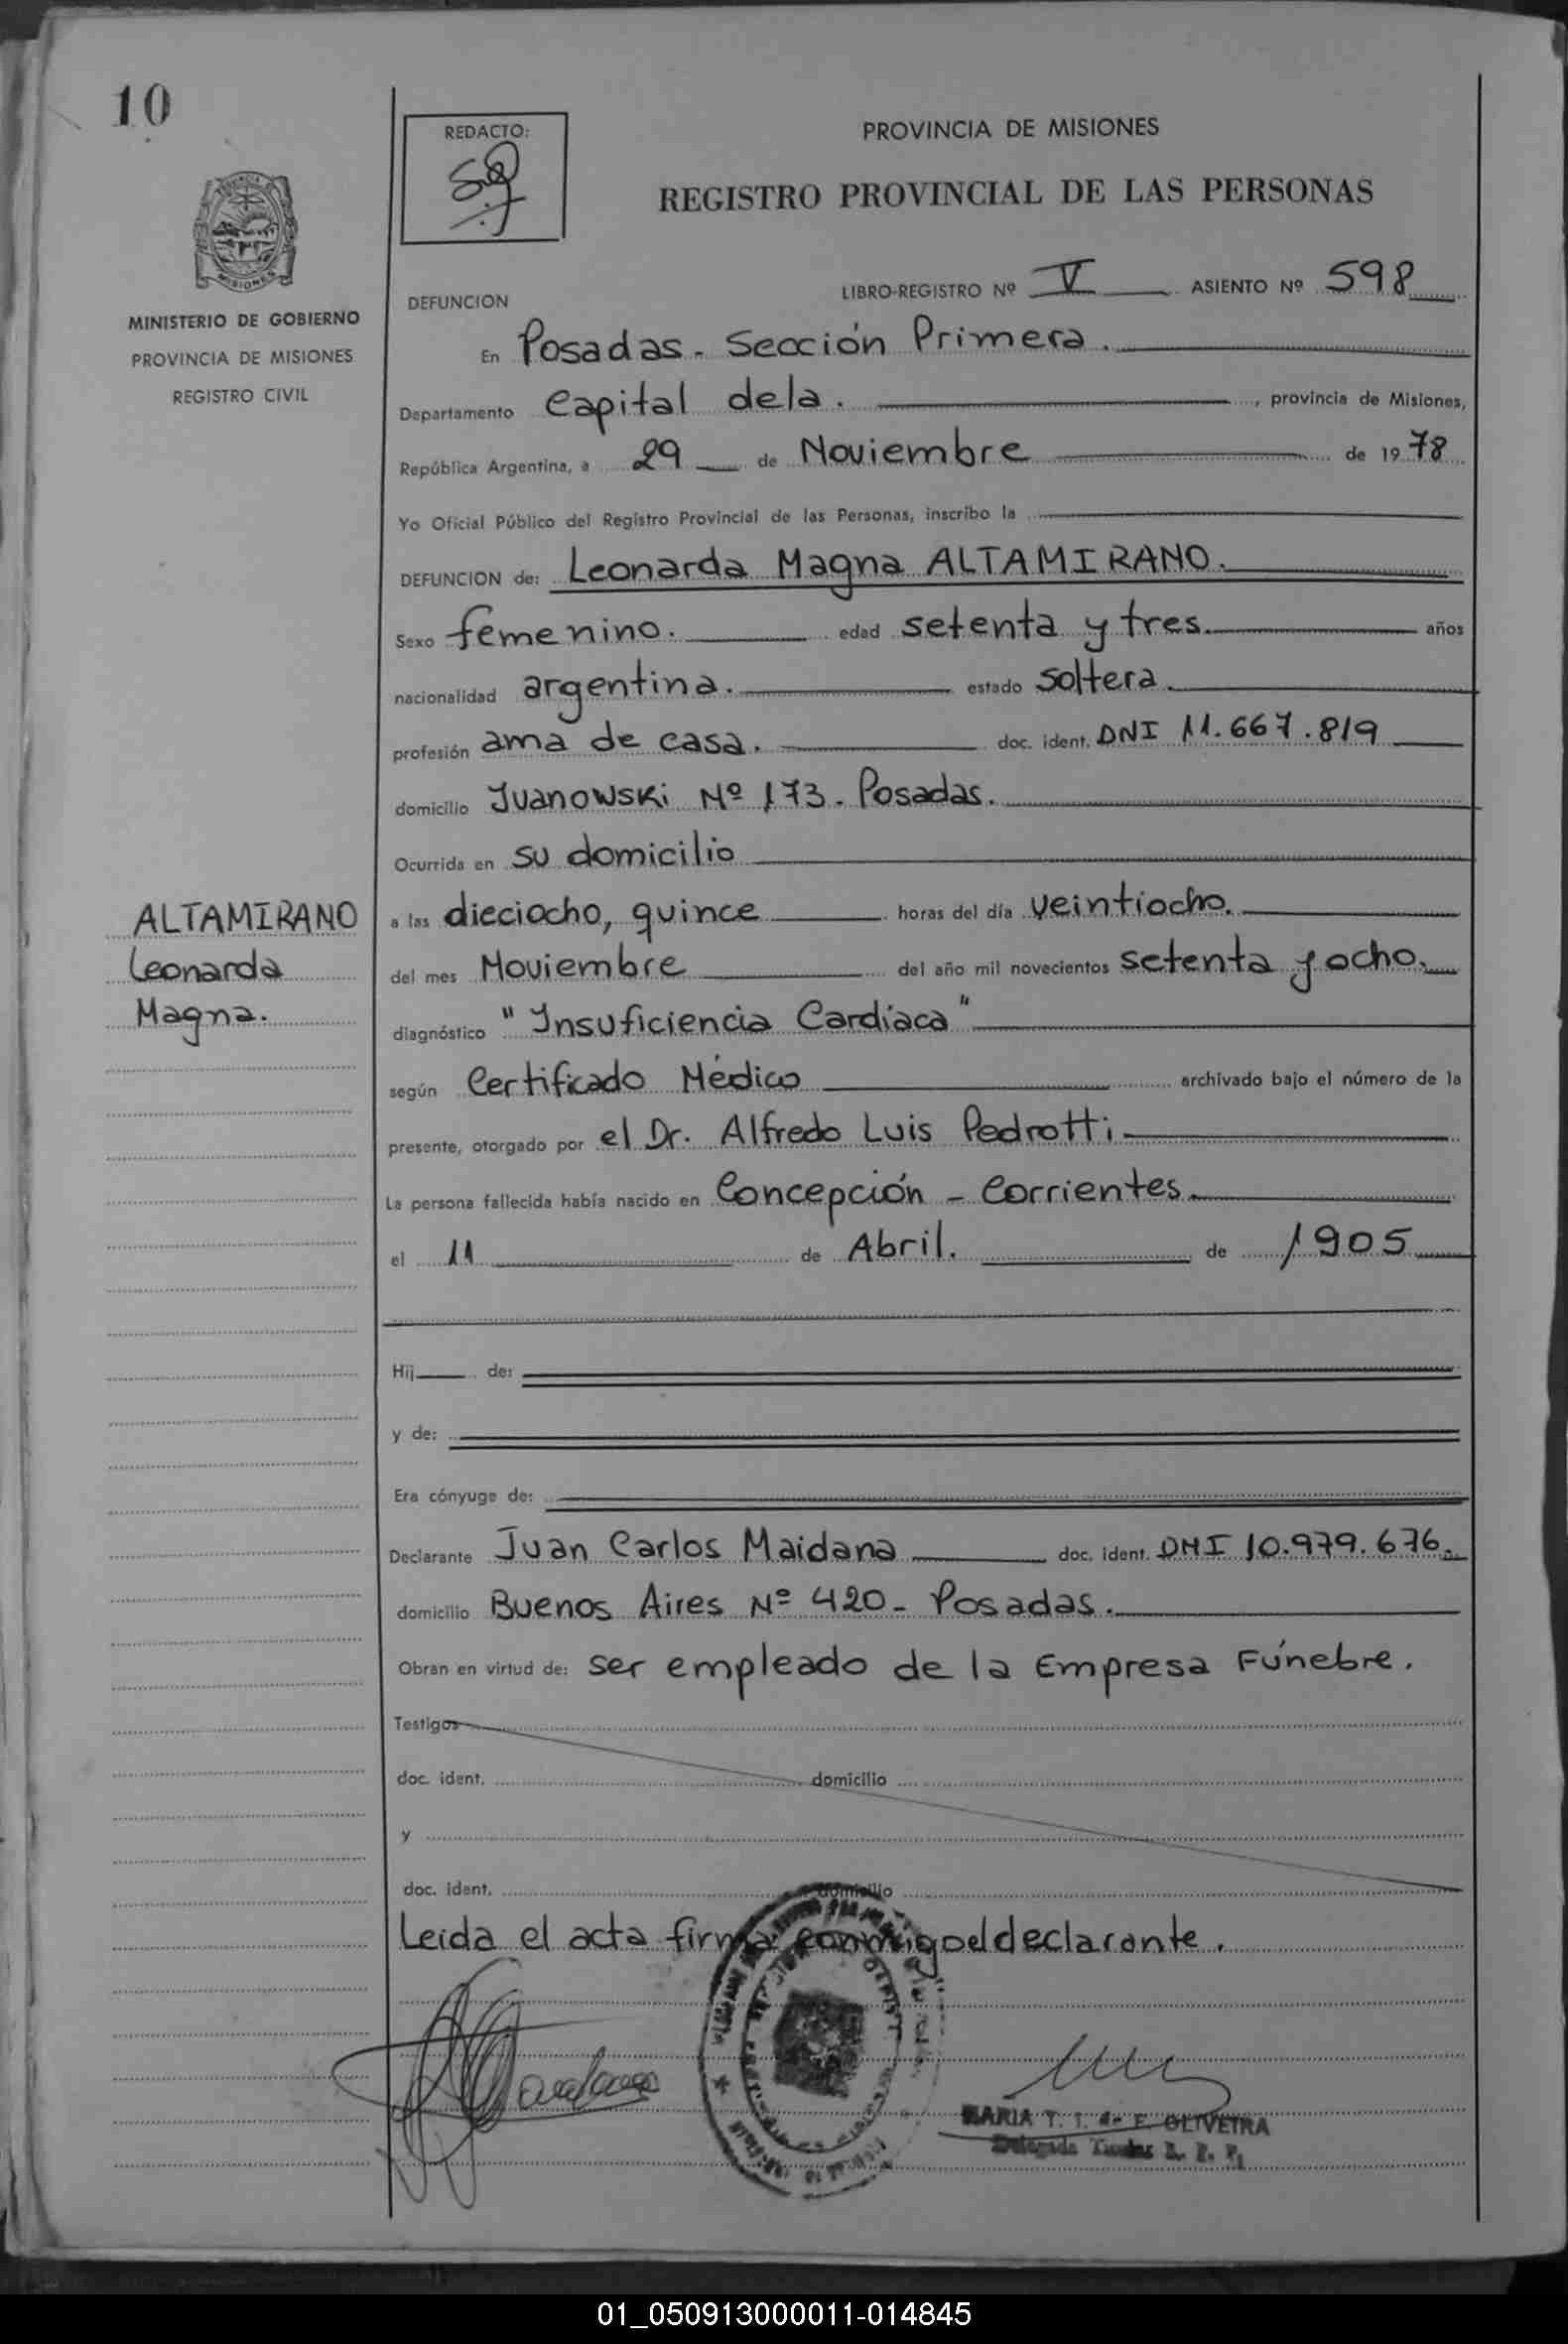 10
REDACTO:
PROVINCIA DE MISIONES
REGISTRO PROVINCIAL DE LAS PERSONAS
MINISTERIO DE GOBIERNO
PROVINCIA DE MISIONES
REGISTRO CIVIL
DEFUNCION
LIBRO-REGISTRO Nº V ASIENTO Nº 598
En Posadas. Sección Primera.
Departamento Capital dela. , provincia de Misiones,
República Argentina, a 29 de Noviembre de 1978
Yo Oficial Público del Registro Provincial de las Personas, inscribo la
DEFUNCION de: Leonarda Magna ALTAMIRANO.
Sexo femenino. edad setenta y tres. años
nacionalidad argentina. estado soltera.
profesión ama de casa. doc. ident. DNI 11.667.819
domicilio Ivanowski Nº 173. Posadas.
Ocurrida en su domicilio
ALTAMIRANO
Leonarda
Magna.
a las dieciocho, quince horas del día veintiocho.
del mes Noviembre del año mil novecientos setenta y ocho.
diagnóstico "Insuficiencia Cardíaca"
según Certificado Médico archivado bajo el número de la
presente, otorgado por el Dr. Alfredo Luis Pedrotti
La persona fallecida había nacido en Concepción - Corrientes.
el 11 de Abril. de 1905
Hij de:
y de:
Era cónyuge de:
Declarante Juan Carlos Maidana doc. ident. DNI 10.979.676.
domicilio Buenos Aires Nº 420 - Posadas.
Obran en virtud de: ser empleado de la Empresa Fúnebre.
Testigos
doc. ident. domicilio
y
doc. ident. domicilio
Leida el acta firma conmigo el declarante.
MARIA T. T. de F. OLIVEIRA
Delegada Titular R. P. P.
01_050913000011-014845